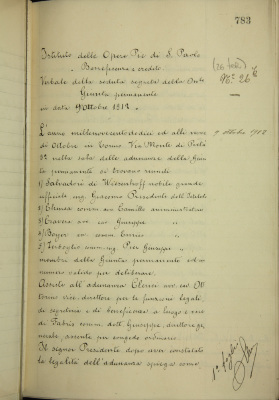 783
Istituto delle Opere Pie di S. Paolo
Beneficenza e credito
Verbale della seduta segreta della On.
Giunta permanente
in data 9 Ottobre 1912.
L'anno millenovecentododici ed alli nove
di Ottobre in Torino Via Monte di Pietà
32 nella sala delle adunanze della Giun
ta permanente si trovano riuniti
1) Salvadori di Wiesenhoff nobile grande
ufficiale ing. Giacomo Presidente dell'Istituto
2) comm. avv. Camillo amministratore
3) avv. cav. Giuseppe "
4) Boyer cav. comm. Enrico "
5) comm. ing. Pier Giuseppe "
membri della Giunta permanente ed in
numero valido per deliberare.
Assiste all'adunanza avv. cav. Ot
torino vice direttore per le funzioni legali
di segreteria e di beneficenza a luogo e vece
di Fabris comm. dott. Giuseppe, direttore ge
nerale, assente per congedo ordinario.
Il signor Presidente dopo aver constatato
la legalità dell'adunanza spiega come
9 ottobre 1912
1° foglio